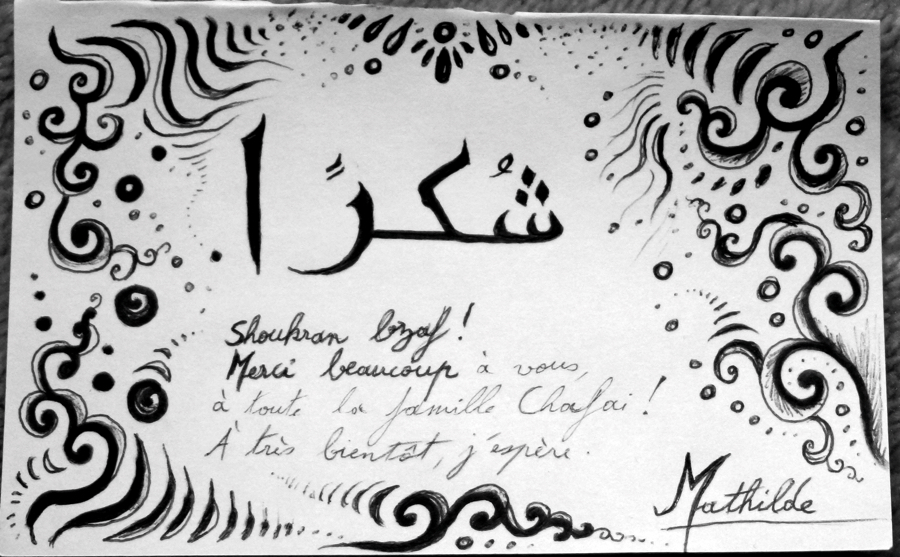 شُكرًا
Shoukran bzaf !
Merci beaucoup à vous,
à toute la famille Chafai !
À très bientôt, j'espère.
Mathilde